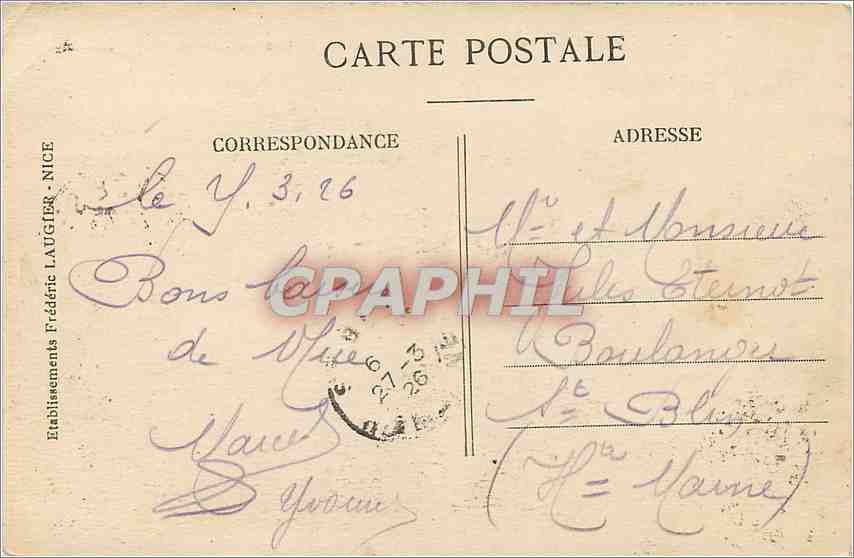 CARTE POSTALE
CORRESPONDANCE
ADRESSE
Etablissements Frédéric LAUGIER - NICE
le 7. 3. 26
Bons
de
Marcel
Yvonne
Mme et Monsieur
Jules Eternot
Boulanger
St Blin
(Hte Marne)
CPAPHIL
6
27-3
26